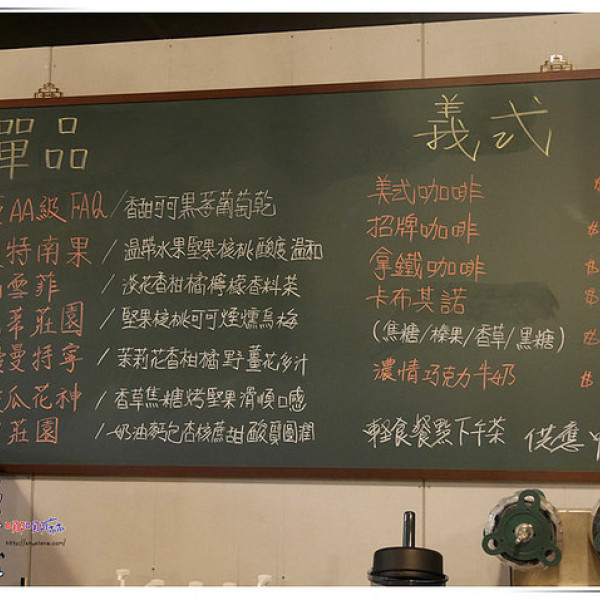 單品
AA級 FAQ / 香甜可可黑莓葡萄乾
特南果 / 溫帶水果堅果核桃酸度溫和
雪菲 / 淡花香柑橘檸檬香料菜
莊園 / 堅果核桃可可煙燻烏梅
曼特寧 / 茉莉花香柑橘野薑花多汁
瓜花神 / 香草焦糖烤堅果滑順口感
莊園 / 奶油麵包杏核蔗甜酸質圓潤
義式
美式咖啡
招牌咖啡
拿鐵咖啡
卡布其諾
(焦糖/榛果/香草/黑糖)
濃情巧克力牛奶
輕食餐點下午茶 供應中